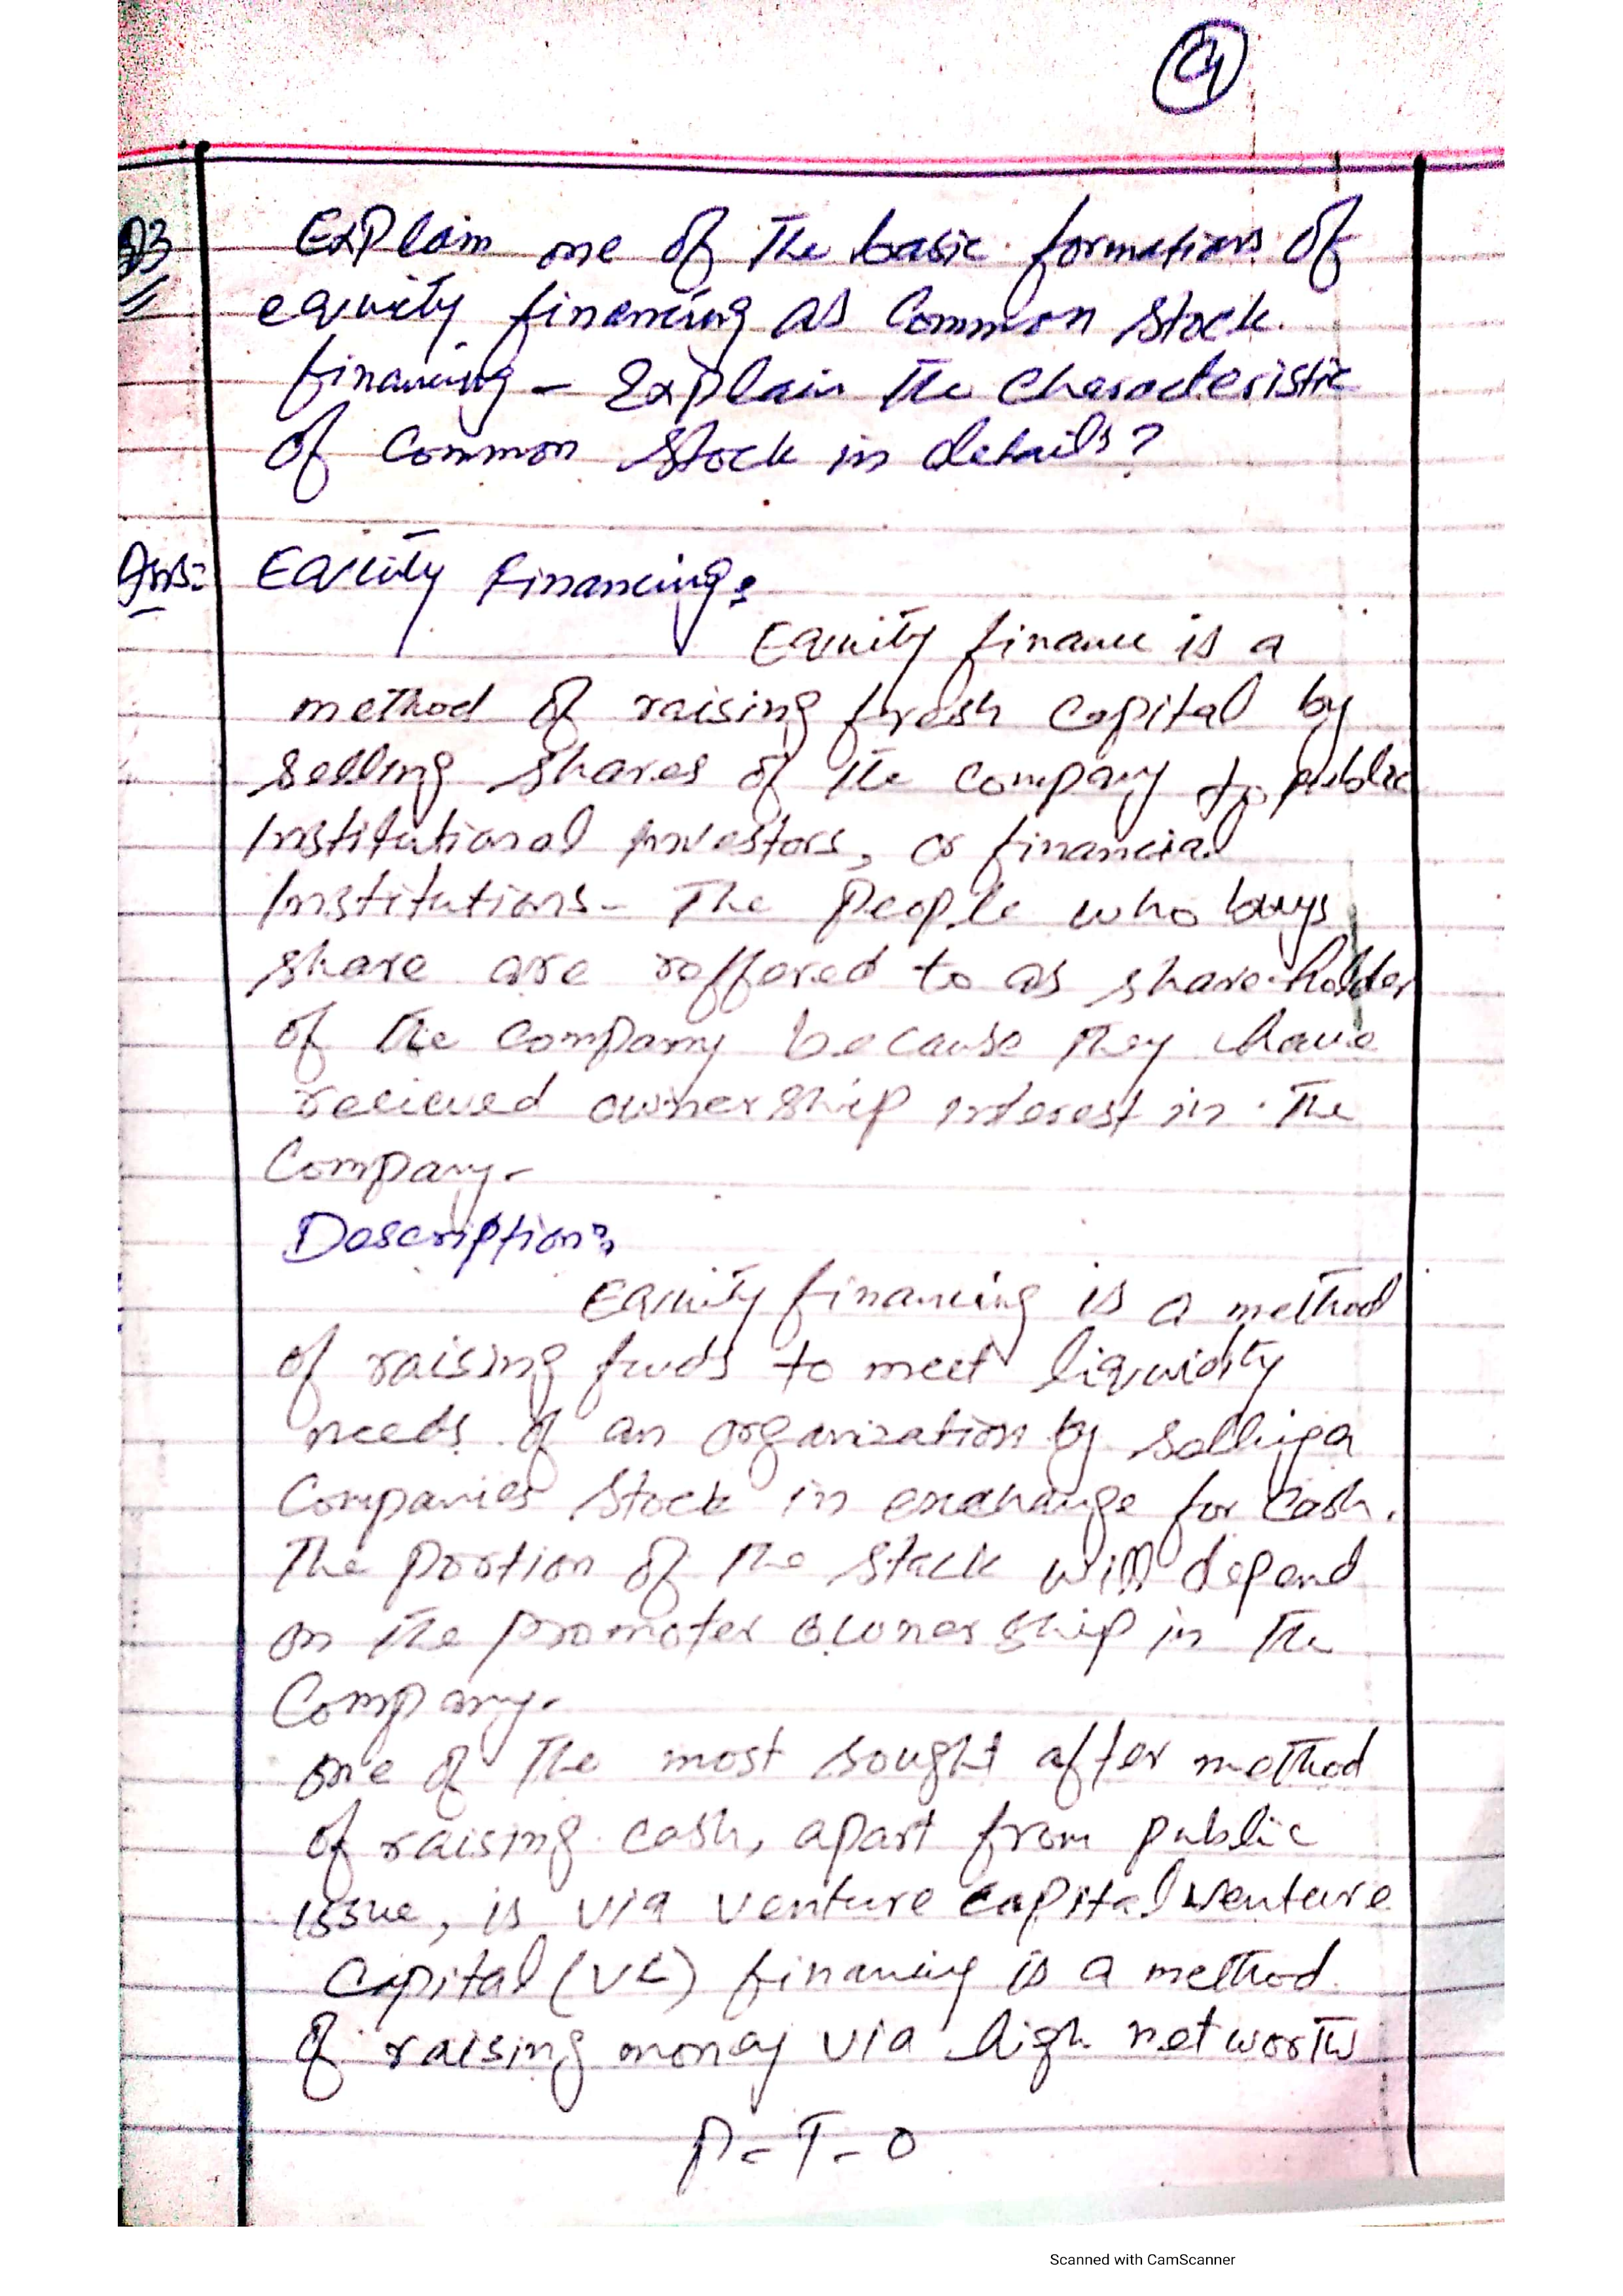 Q3 Explain one of the basic formations of
equity financing as Common Stock.
financing - Explain the characteristic
of Common Stock in details?
Ans: Equity Financing:
Equity finance is a
method of raising fresh capital by
selling shares of the company to public
Institutional investors, or financial
Institutions- The People who buys
share are reffered to as share-holder
of the company because they have
recieved ownership interest in the
Company-
Description:
Equity financing is a method
of raising funds to meet liquidity
needs of an organization by selling a
Companies Stock in exchange for cash.
The portion of the stack will depend
on the promoter ownership in the
Company.
one of the most sought after method
of raising cash, apart from public
issue, is via venture capital venture
Capital (VC) financing is a method
of raising money via high networth
P-T-O
Scanned with CamScanner